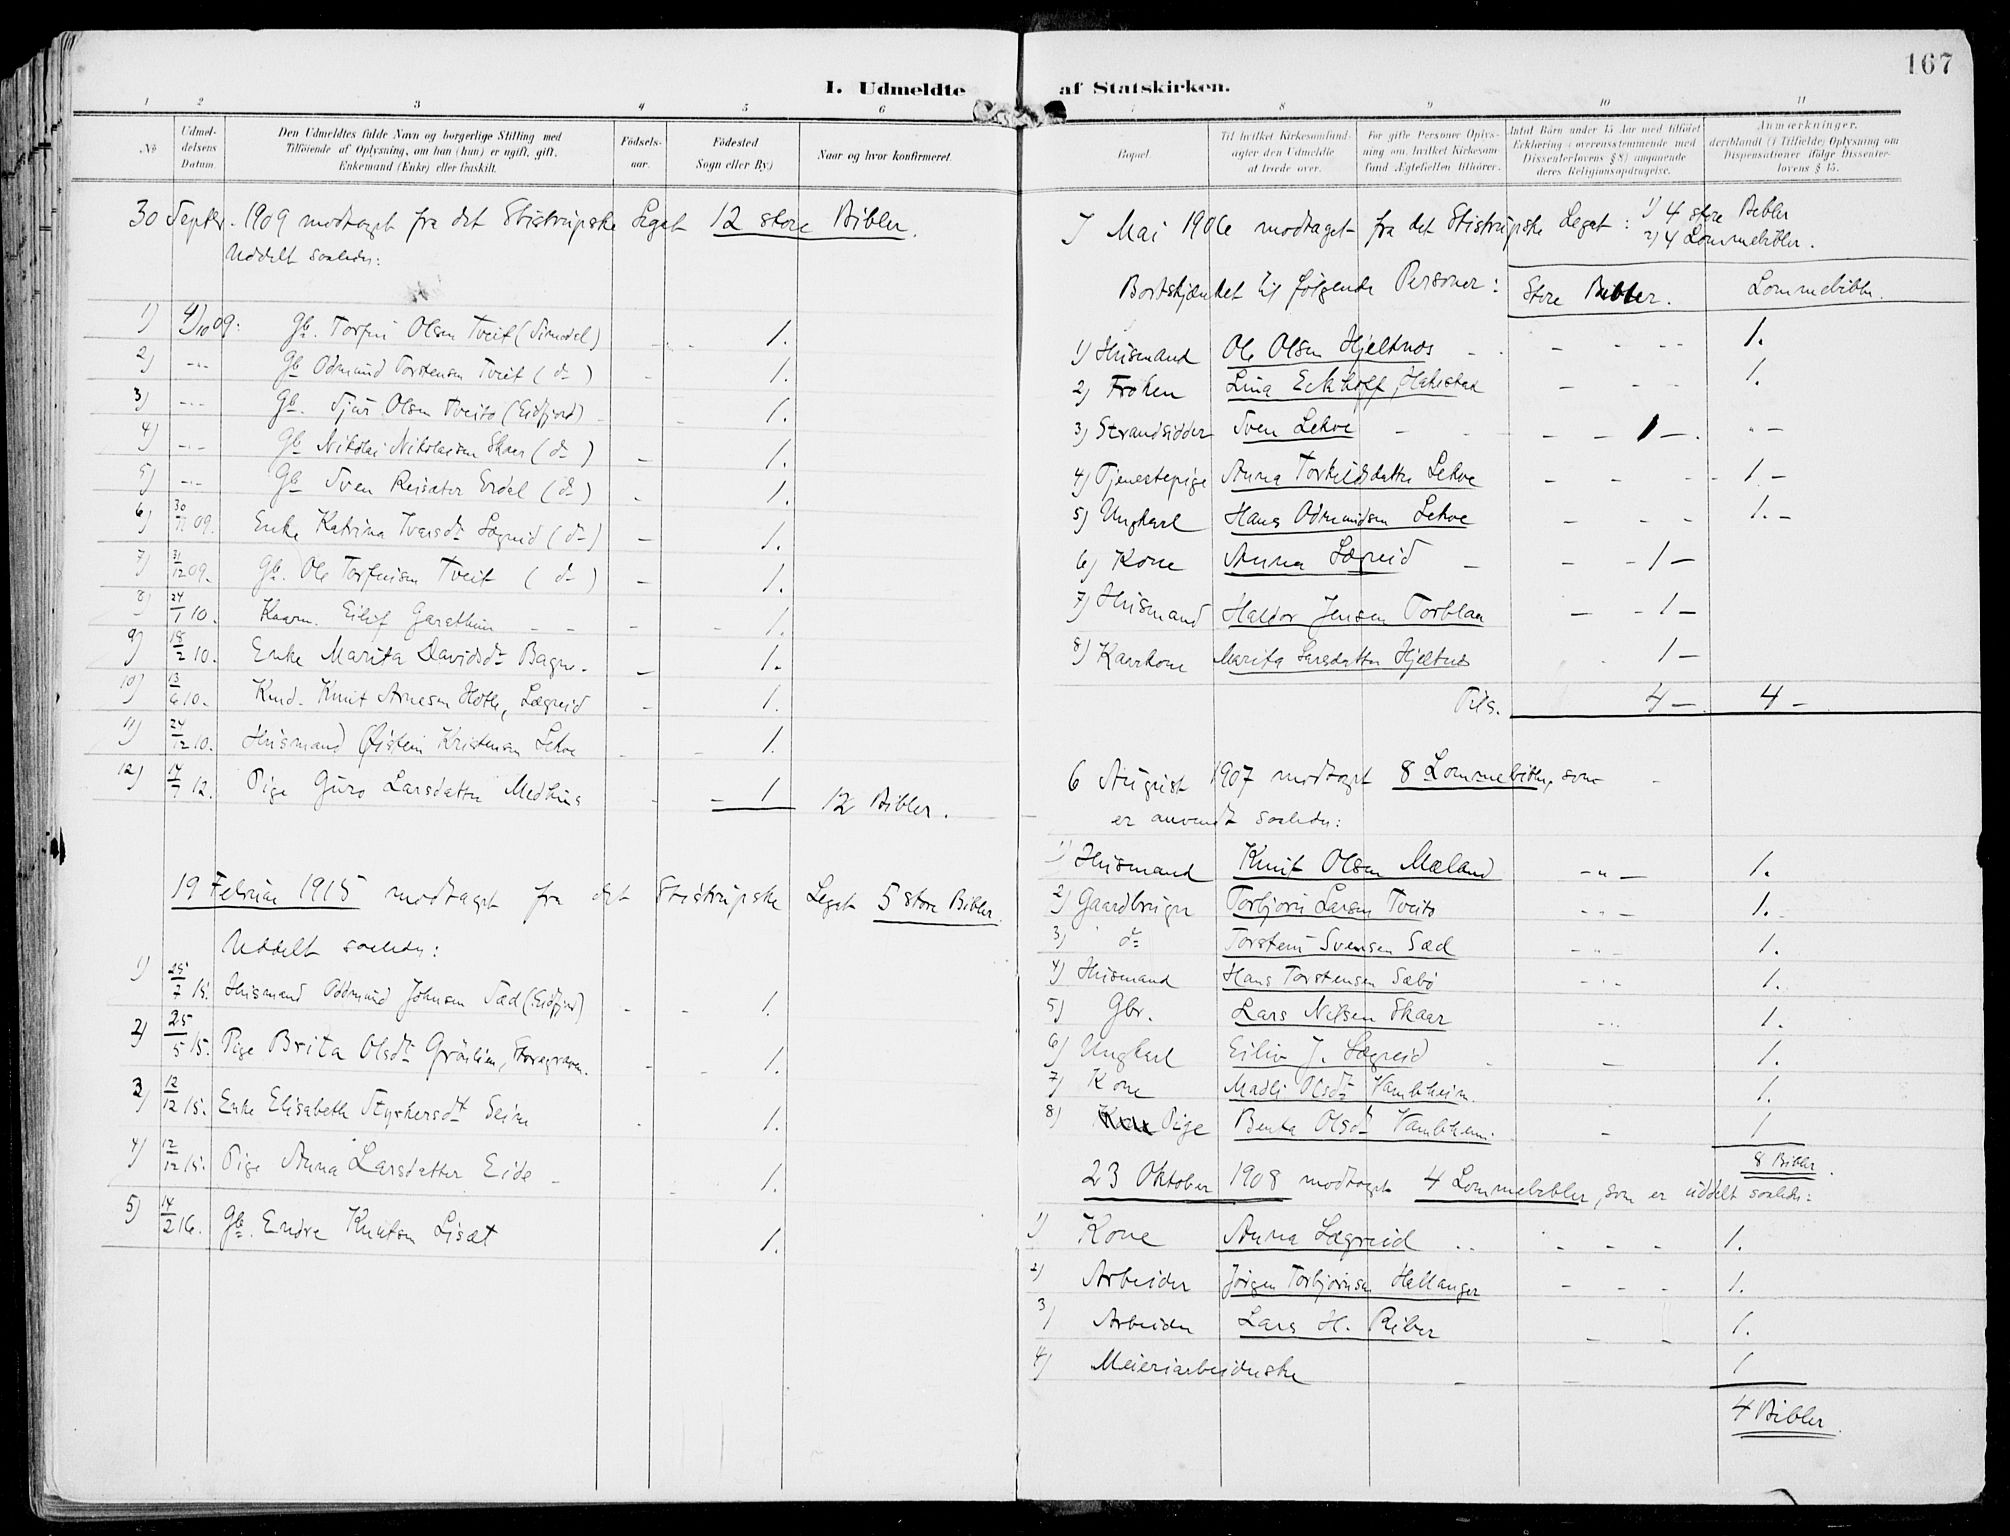 167
I. Udmeldte af Statskirken.
1 2 3 4 5 6
No
Udmel-
delsens
Datum.
Den Udmeldtes fulde Navn og borgerlige Stilling med
Tilføiende af Oplysning, om han (hun) er ugift, gift,
Enkemand (Enke) eller fraskilt.
Fødsels-
aar.
Fødested
Sogn eller By)
Naar og hvor konfirmeret.
30 Septbr. 1909 modtaget fra det Stistrupske Legat 12 store Bibler.
Uddelt saaledes:
1) 4/10 09: Gb. Torfin Olsen Tveit (Simodal) 1.
2) -"- Gb Odmund Torstensen Tveit (do) 1.
3) -"- Gb. Olsen Tveito (Eidfjord) 1.
4) -"- Gb Nikolai Nikolaisen Skaar (do) 1.
5) -"- Gb Sven Reisæter Erdal (do) 1.
6) 30/11 09. Enke Katrina Iversdt Lægreid (do) 1.
7) 31/12 09. Gb. Ole Torfinsen Tveit (do) 1.
8) 24/1 10. Kaarm. Eilif Garathun 1.
9) 18/2 10. Enke Marita Davidsdt Bagne. 1.
10) 13/6 10. Knut Arnesen Hoth, Lægreid 1.
11) 24/12 10. Husmand Øistein Kristensen Lekve 1.
12) 12. Pige Guro Larsdatter Medhus 1 12 Bibler.
19 Februar 1915 modtaget fra det Stistrupske Legat 5 store Bibler.
Uddelt saaledes:
1) 15. Husmand Oddmund Johnsen Sæd (Eidfjord) 1.
2) 25/5 15. Pige Brita Olsdt Grønlien, 1.
3) 12/12 15. Enke Elisabeth Styrkersdt Seim 1.
4) 12/12 15. Pige Anna Larsdatter Eide 1.
5) 14/2 16. Gb. Endre Knutsen Lisæt 1.
7 8 9 10 11
Bopæl
Til hvilket Kirkesamfund
agter den Udmeldte
at træde over.
For gifte Personer Oplys-
ning om, hvilket Kirkesam-
fund Ægtefællen tilhører.
Antal Børn under 15 Aar med tilføiet
Erklæring (overensstemmende med
Dissenterlovens § 8) angaaende
deres Religionsopdragelse.
Anmærkninger,
deriblandt (i Tilfælde) Oplysning om
Dispensationer ifølge Dissenter-
lovens § 15.
7 Mai 1906 modtaget fra det Stistrupske Legat: 1) 4 store Bibler
2) 4 Lommebibler.
Bortskjænket til følgende Personer: Store Bibler. Lommebibler.
1) Husmand Ole Olsen Hjeltnes 1.
2) Frøken Lina Eckhoff, 1.
3) Strandsidder Sven Lekve 1
4) Tjenestepige Anna Torkildsdatter Lekve 1
5) Ungkarl Hans Odmundsen Lekve 1.
6) Kone Anna Lægreid 1
7) Husmand Haldor Jensen Torblaa 1
8) Kaarkone Marita Larsdatter Hjeltnes 1
Tils. 4 4
6 August 1907 modtaget 8 Lommebibler, som
er anvendt saaledes:
1) Husmand Knut Olsen Mæland -"- 1.
2) Gaardbruger Torbjørn Larsen Tveito 1.
3) do Torstein Svensen Sæd 1.
4) Husmand Hans Torstensen Sæbø 1.
5) Gbr. Lars Nilsen Skaar 1.
6) Ungkarl Eiliv J. Lægreid 1.
7) Kone Madli Olsdt Vambheim. 1.
8) Pige Benta Olsdt Vambheim. 1
8 Bibler.
23 Oktober 1908 modtaget 4 Lommebibler, som er uddelt saaledes:
1) Kone Anna Lægreid 1.
2) Arbeider Jørgen Torbjørnsen Hallanger 1.
3) Arbeider Lars H. Riber 1.
4) Meieriarbeiderske 1
4 Bibler.